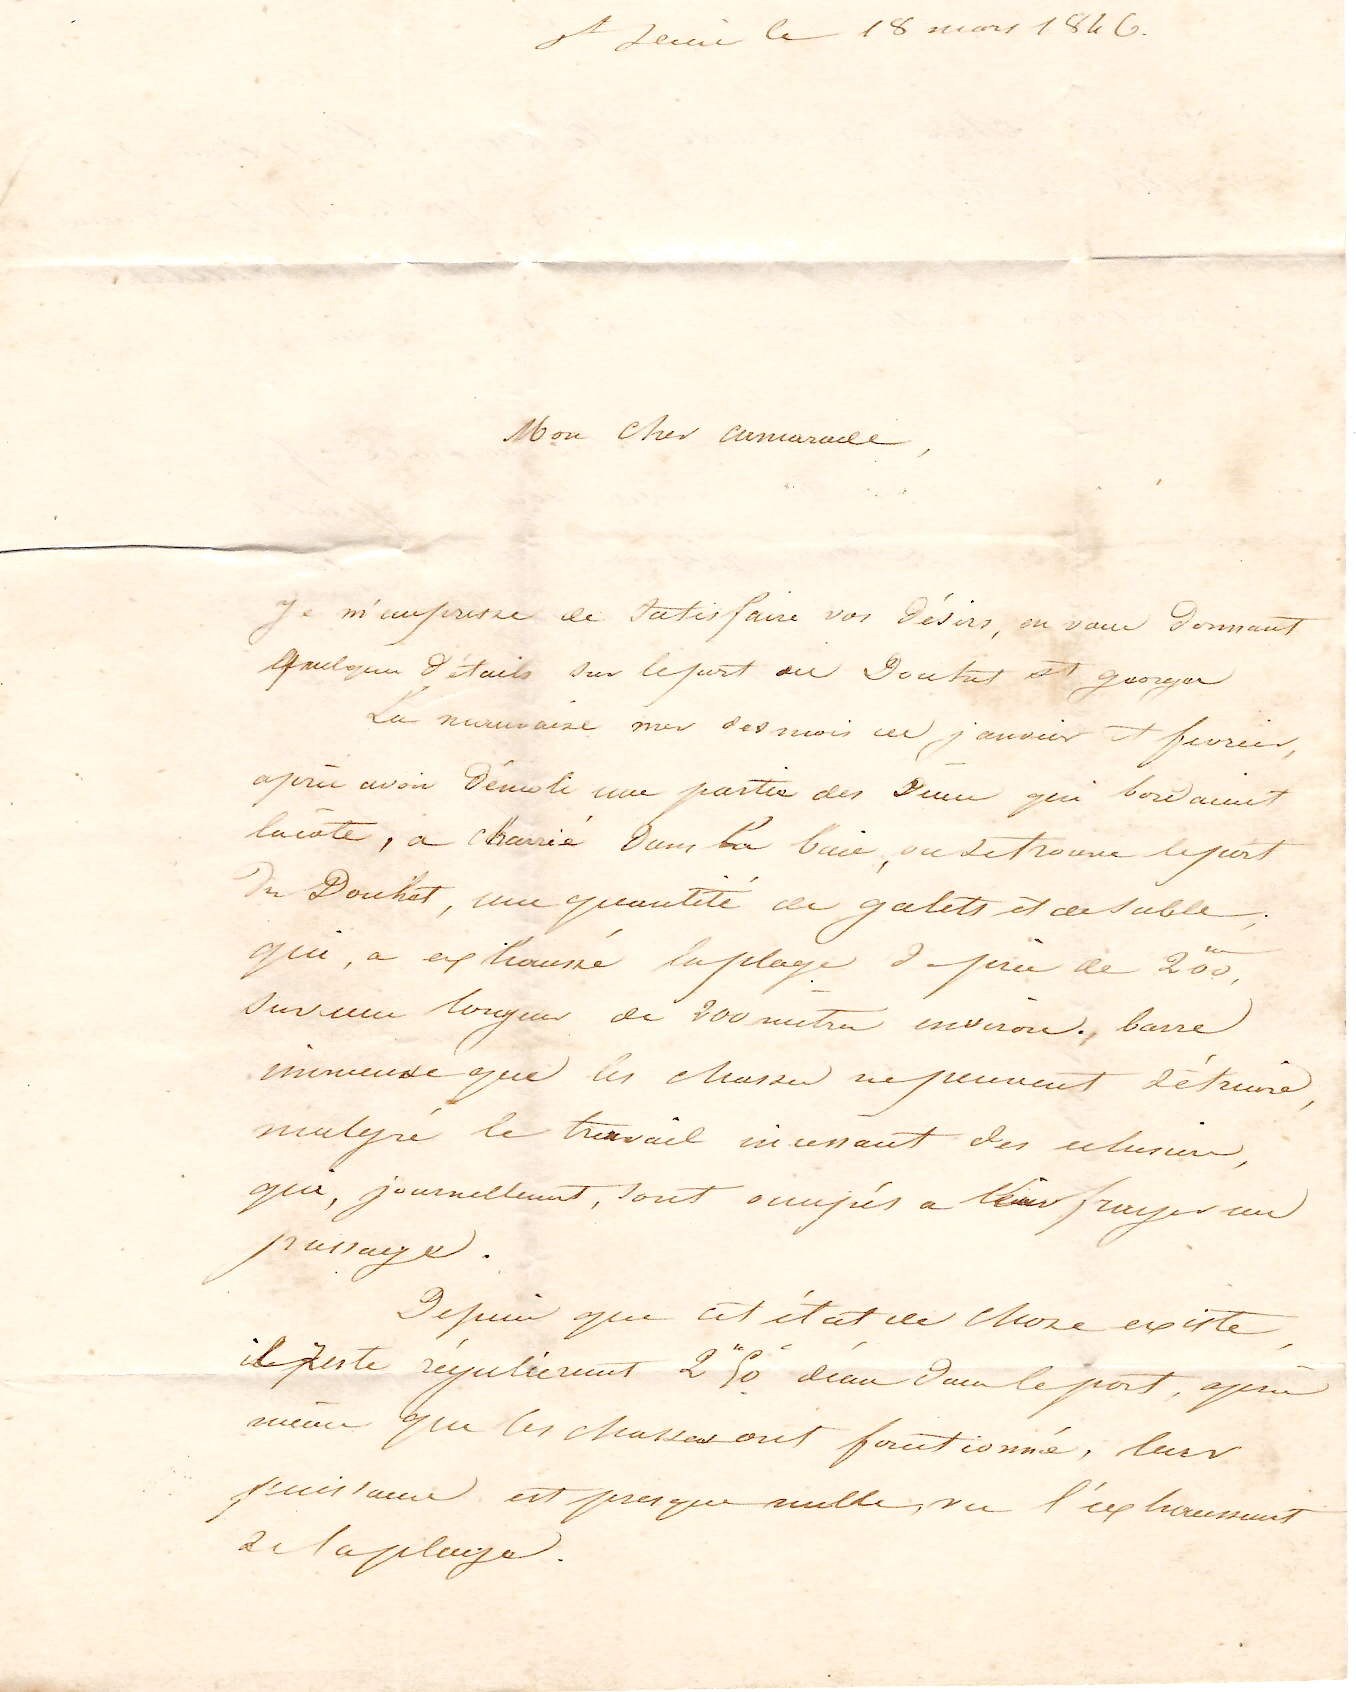 St Denis le 18 mars 1846.
Mon cher camarade,
Je m'empresse de satisfaire vos désirs, en vous donnant
quelques détails sur le port du Douhet St george
La mauvaise mer des mois de janvier et fevrier,
après avoir démoli une partie des dunes qui bordaient
la côte, a charrié dans la baie, ou se trouve le port
du Douhet, une quantité de galets et de sable,
qui, a exhaussé la plage de près de 2m00,
sur une longueur de 200 mètres environ., barre
immense que les chasses ne peuvent détruire,
malgré le travail incessant des eclusiers,
qui, journellement, sont occupés a leur frayer un
passage.
Depuis que cet état de chose existe,
il reste régulièrement 2m50c d'eau dans le port, après
même que les chasses ont fonctionné, leur
puissance est presque nulle, vu l'exhaussement
de la plage.